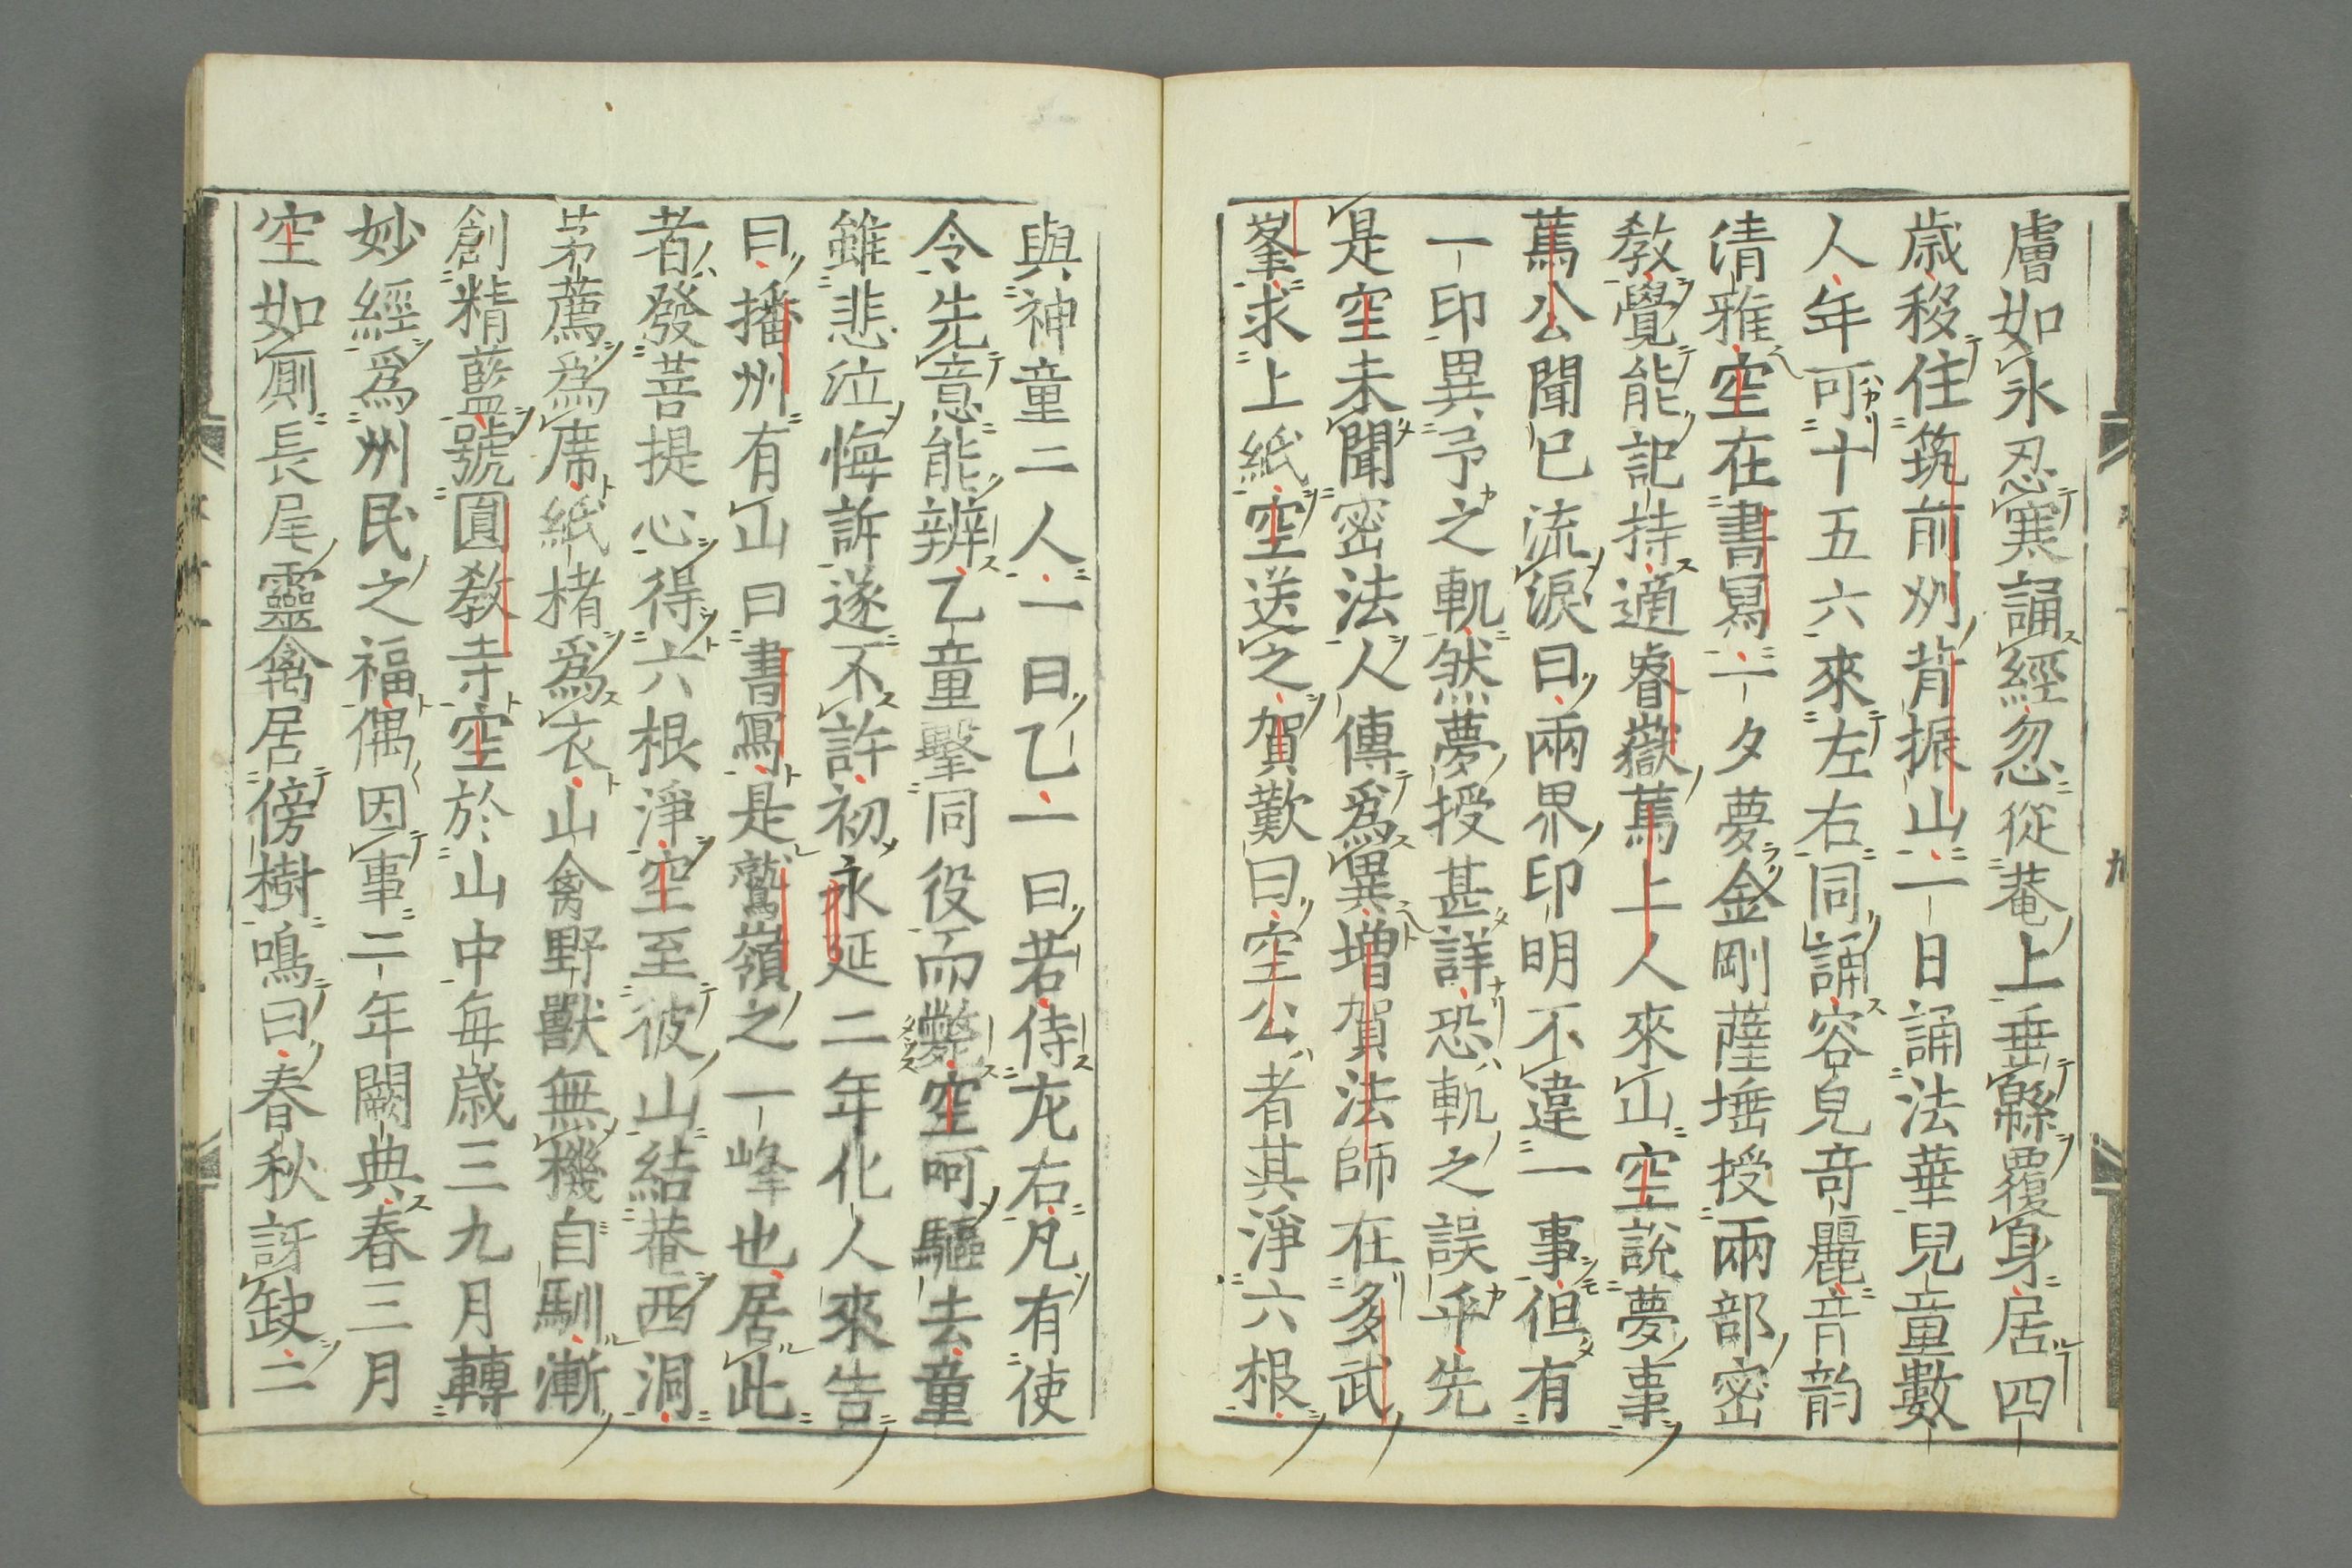 膚如氷忍寒誦經忽從菴上垂緜覆身居四
歳移住筑前州背振山一日誦法華兒童數
人年可十五六來左右同誦容皃竒麗音韵
清雅空在書寫一夕夢金剛薩埵授兩部密
教覺能記持適睿嶽蔦上人來山空説夢事
蔦公聞已流淚曰兩界印明不違一事但有
一印異予之軌然夢授甚詳恐軌之誤乎先
是空未聞密法人傳爲異増賀法師在多武
峯求上紙空送之賀歎曰空公者其淨六根
與神童二人一曰乙一曰若侍左右凡有使
令先意能辨乙童毆同役而斃空呵驅去童
雖悲泣悔訴遂不許初永延二年化人來告
曰播州有山曰書寫是鷲嶺之一峰也居此
者發菩提心得六根淨空至彼山結菴西洞
茅薦爲席紙楮爲衣山禽野獸無機自馴漸
創精藍號圓教寺空於山中毎歳三九月轉
妙經爲州民之福偶因事二年闕典春三月
空如厠長尾靈禽居傍樹鳴曰春秋訝缺二